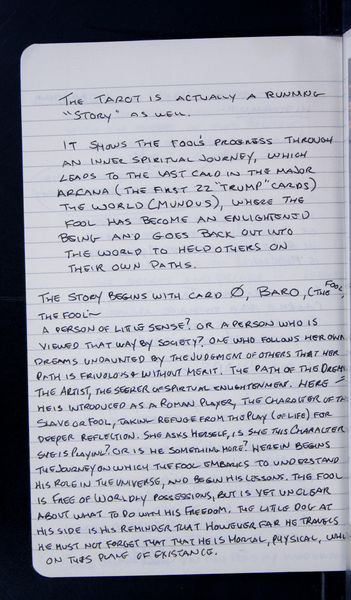 THE TAROT IS ACTUALLY A RUNNING
"STORY" AS WELL.
IT SHOWS THE FOOL'S PROGRESS THROUGH
AN INNER SPIRITUAL JOURNEY, WHICH
LEADS TO THE LAST CARD IN THE MAJOR
ARCANA (THE FIRST 22 "TRUMP" CARDS)
THE WORLD (MUNDUS), WHERE THE
FOOL HAS BECOME AN ENLIGHTENED
BEING AND GOES BACK OUT INTO
THE WORLD TO HELD OTHERS ON
THEIR OWN PATHS.
THE STORY BEGINS WITH CARD Ø, BARO, (THE FOOL,
THE FOOL~
A PERSON OF LITTLE SENSE? OR A PERSON WHO IS
VIEWED THAT WAY BY SOCIETY? ONE WHO FOLLOWS HER OWN
DREAMS UNDAUNTED BY THE JUDGMENT OF OTHERS THAT HER
PATH IS FRIVOLOUS & WITHOUT MERIT. THE PATH OF THE
THE ARTIST, THE SEEKER OF SPIRITUAL ENLIGHTENMENT. HERE
HE IS INTRODUCED AS A ROMAN PLAYER, THE CHARACTER OF
SLAVE OR FOOL, TAKING REFUGE FROM THE PLAY (OF LIFE) FOR
DEEPER REFLECTION. SHE ASKS HERSELF, IS SHE THIS CHARACTER
SHE IS PLAYING? OR IS HE SOMETHING MORE? HEREIN BEGINS
THE JOURNEY ON WHICH THE FOOL EMBARKS TO UNDERSTAND
HIS ROLE IN THE UNIVERSE, AND BEGIN HIS LESSONS. THE FOOL
IS FREE OF WORLDLY POSSESSIONS, BUT IS YET UNCLEAR
ABOUT WHAT TO DO WITH HIS FREEDOM. THE LITTLE DOG AT
HIS SIDE IS HIS REMINDER THAT HOWEVER FAR HE TRAVELS
HE MUST NOT FORGET THAT THAT HE IS MORTAL, PHYSICAL,
ON THIS PLANE OF EXISTANCE.